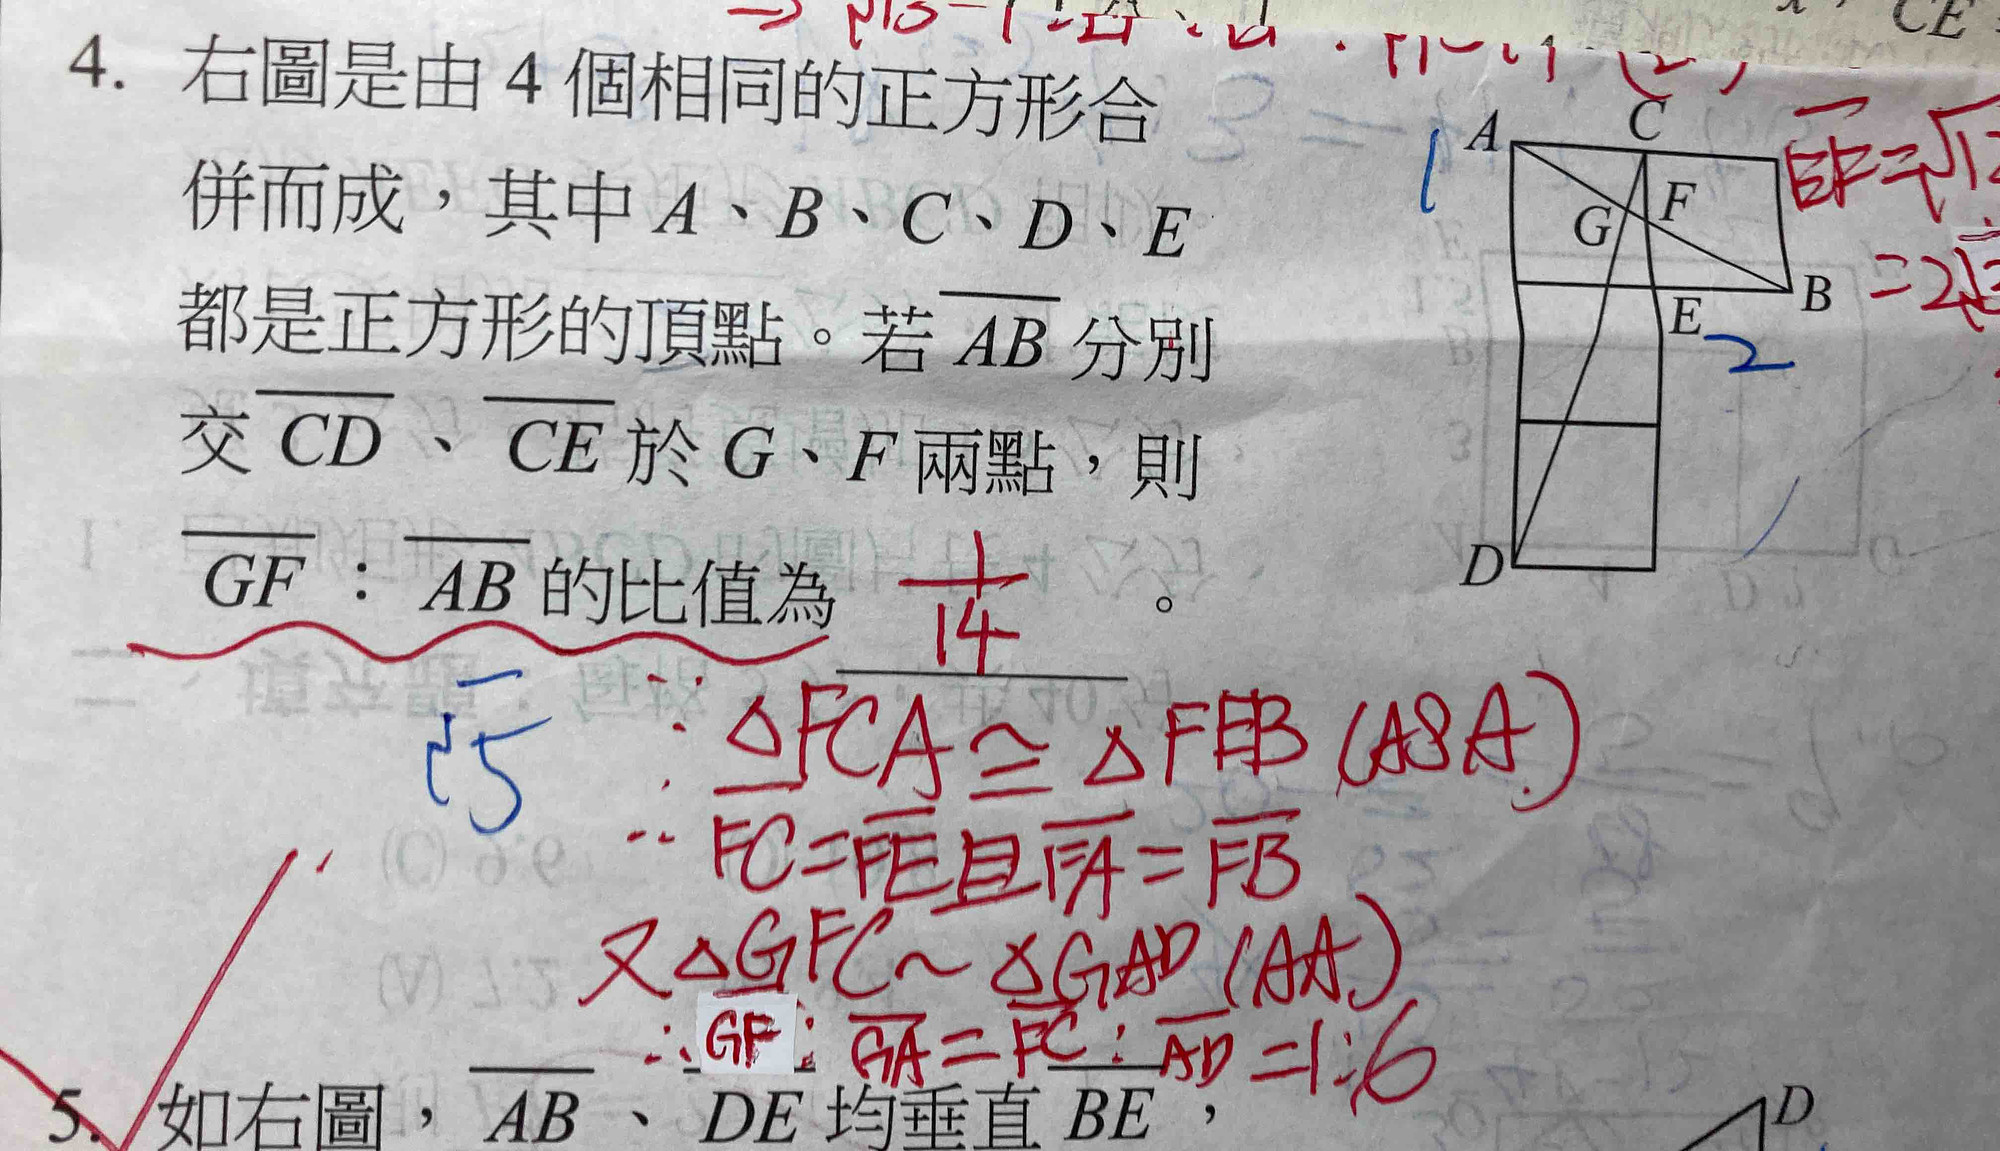 CE
4. 右圖是由 4 個相同的正方形合
併而成，其中 A、B、C、D、E
都是正方形的頂點。若 AB 分別
交 CD、CE 於 G、F 兩點，則
GF：AB 的比值為 1/14 。
A
C
F
G
B
E
D
1
2
EF=√12
=2√3
√5
∵ △FCA≅△FEB (ASA)
∴ FC=FE且FA=FB
又△GFC~△GAD (AA)
∴ GF：GA=FC：AD=1:6
5. 如右圖，AB、DE 均垂直 BE，
D